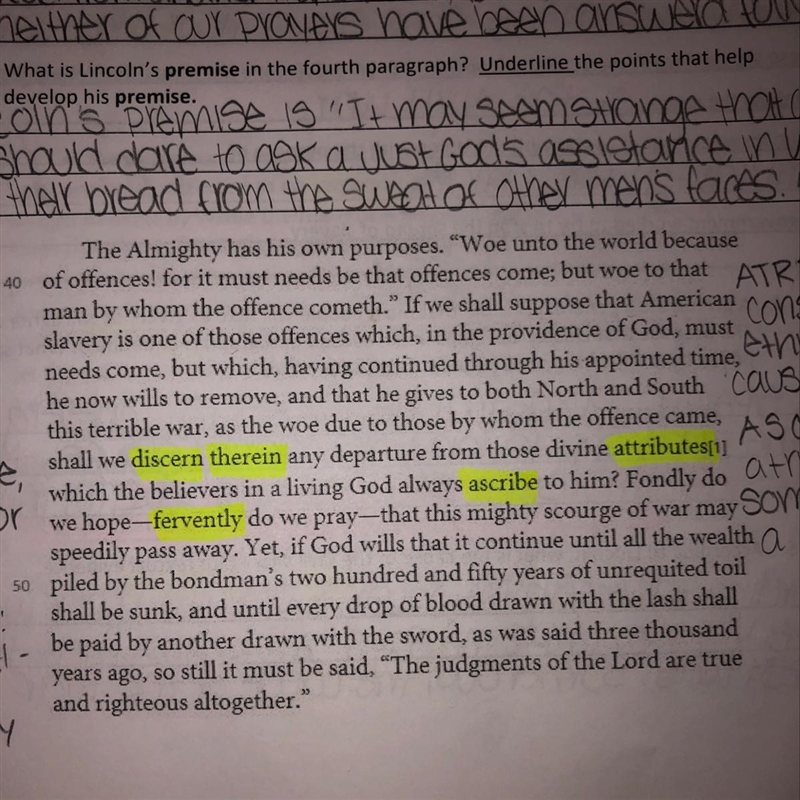 neither of our prayers have been answerd
What is Lincoln's premise in the fourth paragraph? Underline the points that help
develop his premise.
premise is "It may seem strange that
should dare to ask a just God's assistance in
their bread from the sweat of other men's faces.
The Almighty has his own purposes. “Woe unto the world because
40 of offences! for it must needs be that offences come; but woe to that
man by whom the offence cometh.” If we shall suppose that American
slavery is one of those offences which, in the providence of God, must
needs come, but which, having continued through his appointed time,
he now wills to remove, and that he gives to both North and South
this terrible war, as the woe due to those by whom the offence came,
shall we discern therein any departure from those divine attributes[1]
which the believers in a living God always ascribe to him? Fondly do
we hope—fervently do we pray—that this mighty scourge of war may
speedily pass away. Yet, if God wills that it continue until all the wealth
50 piled by the bondman's two hundred and fifty years of unrequited toil
shall be sunk, and until every drop of blood drawn with the lash shall
be paid by another drawn with the sword, as was said three thousand
years ago, so still it must be said, “The judgments of the Lord are true
and righteous altogether.”